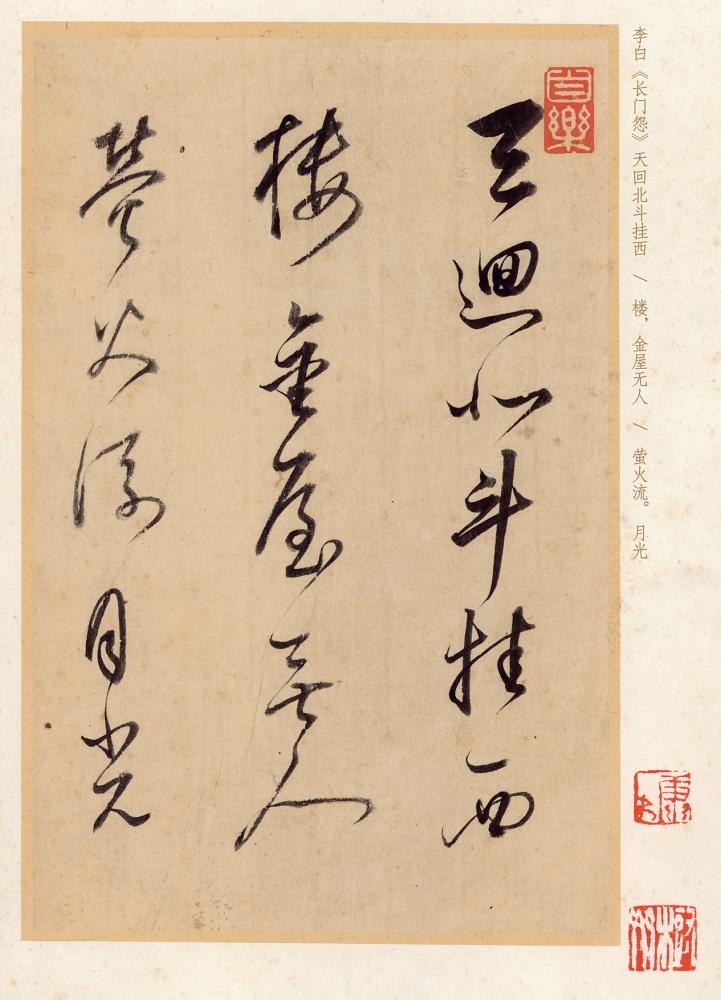 李白《长门怨》天回北斗挂西 \ 楼，金屋无人 \ 萤火流。 月光
天迴北斗挂西
楼金屋无人
萤火流月光